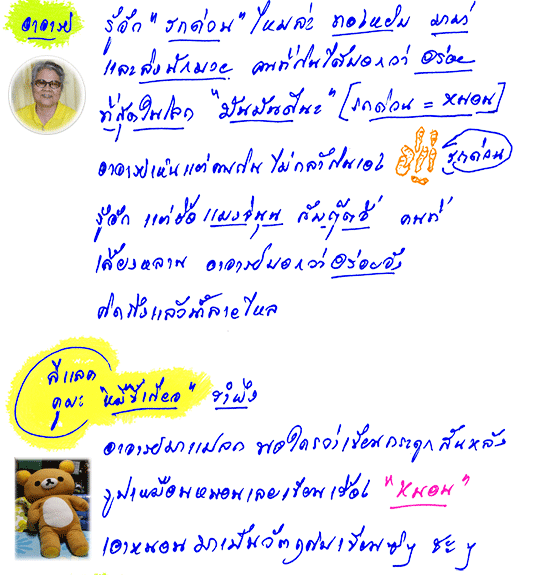 อาจารย์ รู้จัก "รถด่วน" ไหมล่ะ ทองหยิบ มาม่า
และส่งนักมวย คนที่กินได้บอกว่า อร่อย
ที่สุดในโลก "มันมันดีนะ" [รถด่วน = หนอน]
อาจารย์เห็นแต่คนกิน ไม่กล้ากินเอง รถด่วน
รู้จัก แต่ชื่อ แมงจินูน กับตุ๊ดจี่ คนที่
เลี้ยงหลาน อาจารย์บอกว่า อร่อยจัง
คิดถึงแล้วน้ำลายไหล
สีแลค
คุมะ "หมีขี้เกียจ" รำพึง
อาจารย์มาแปลก พอใครว่าเขียนกระดูกสันหลัง
รูปเหมือนหนอนเลยเขียนเรื่อง "หนอน"
เอาหนอน มาเป็นวัตถุดิบเขียน ๆ ซะ ๆ